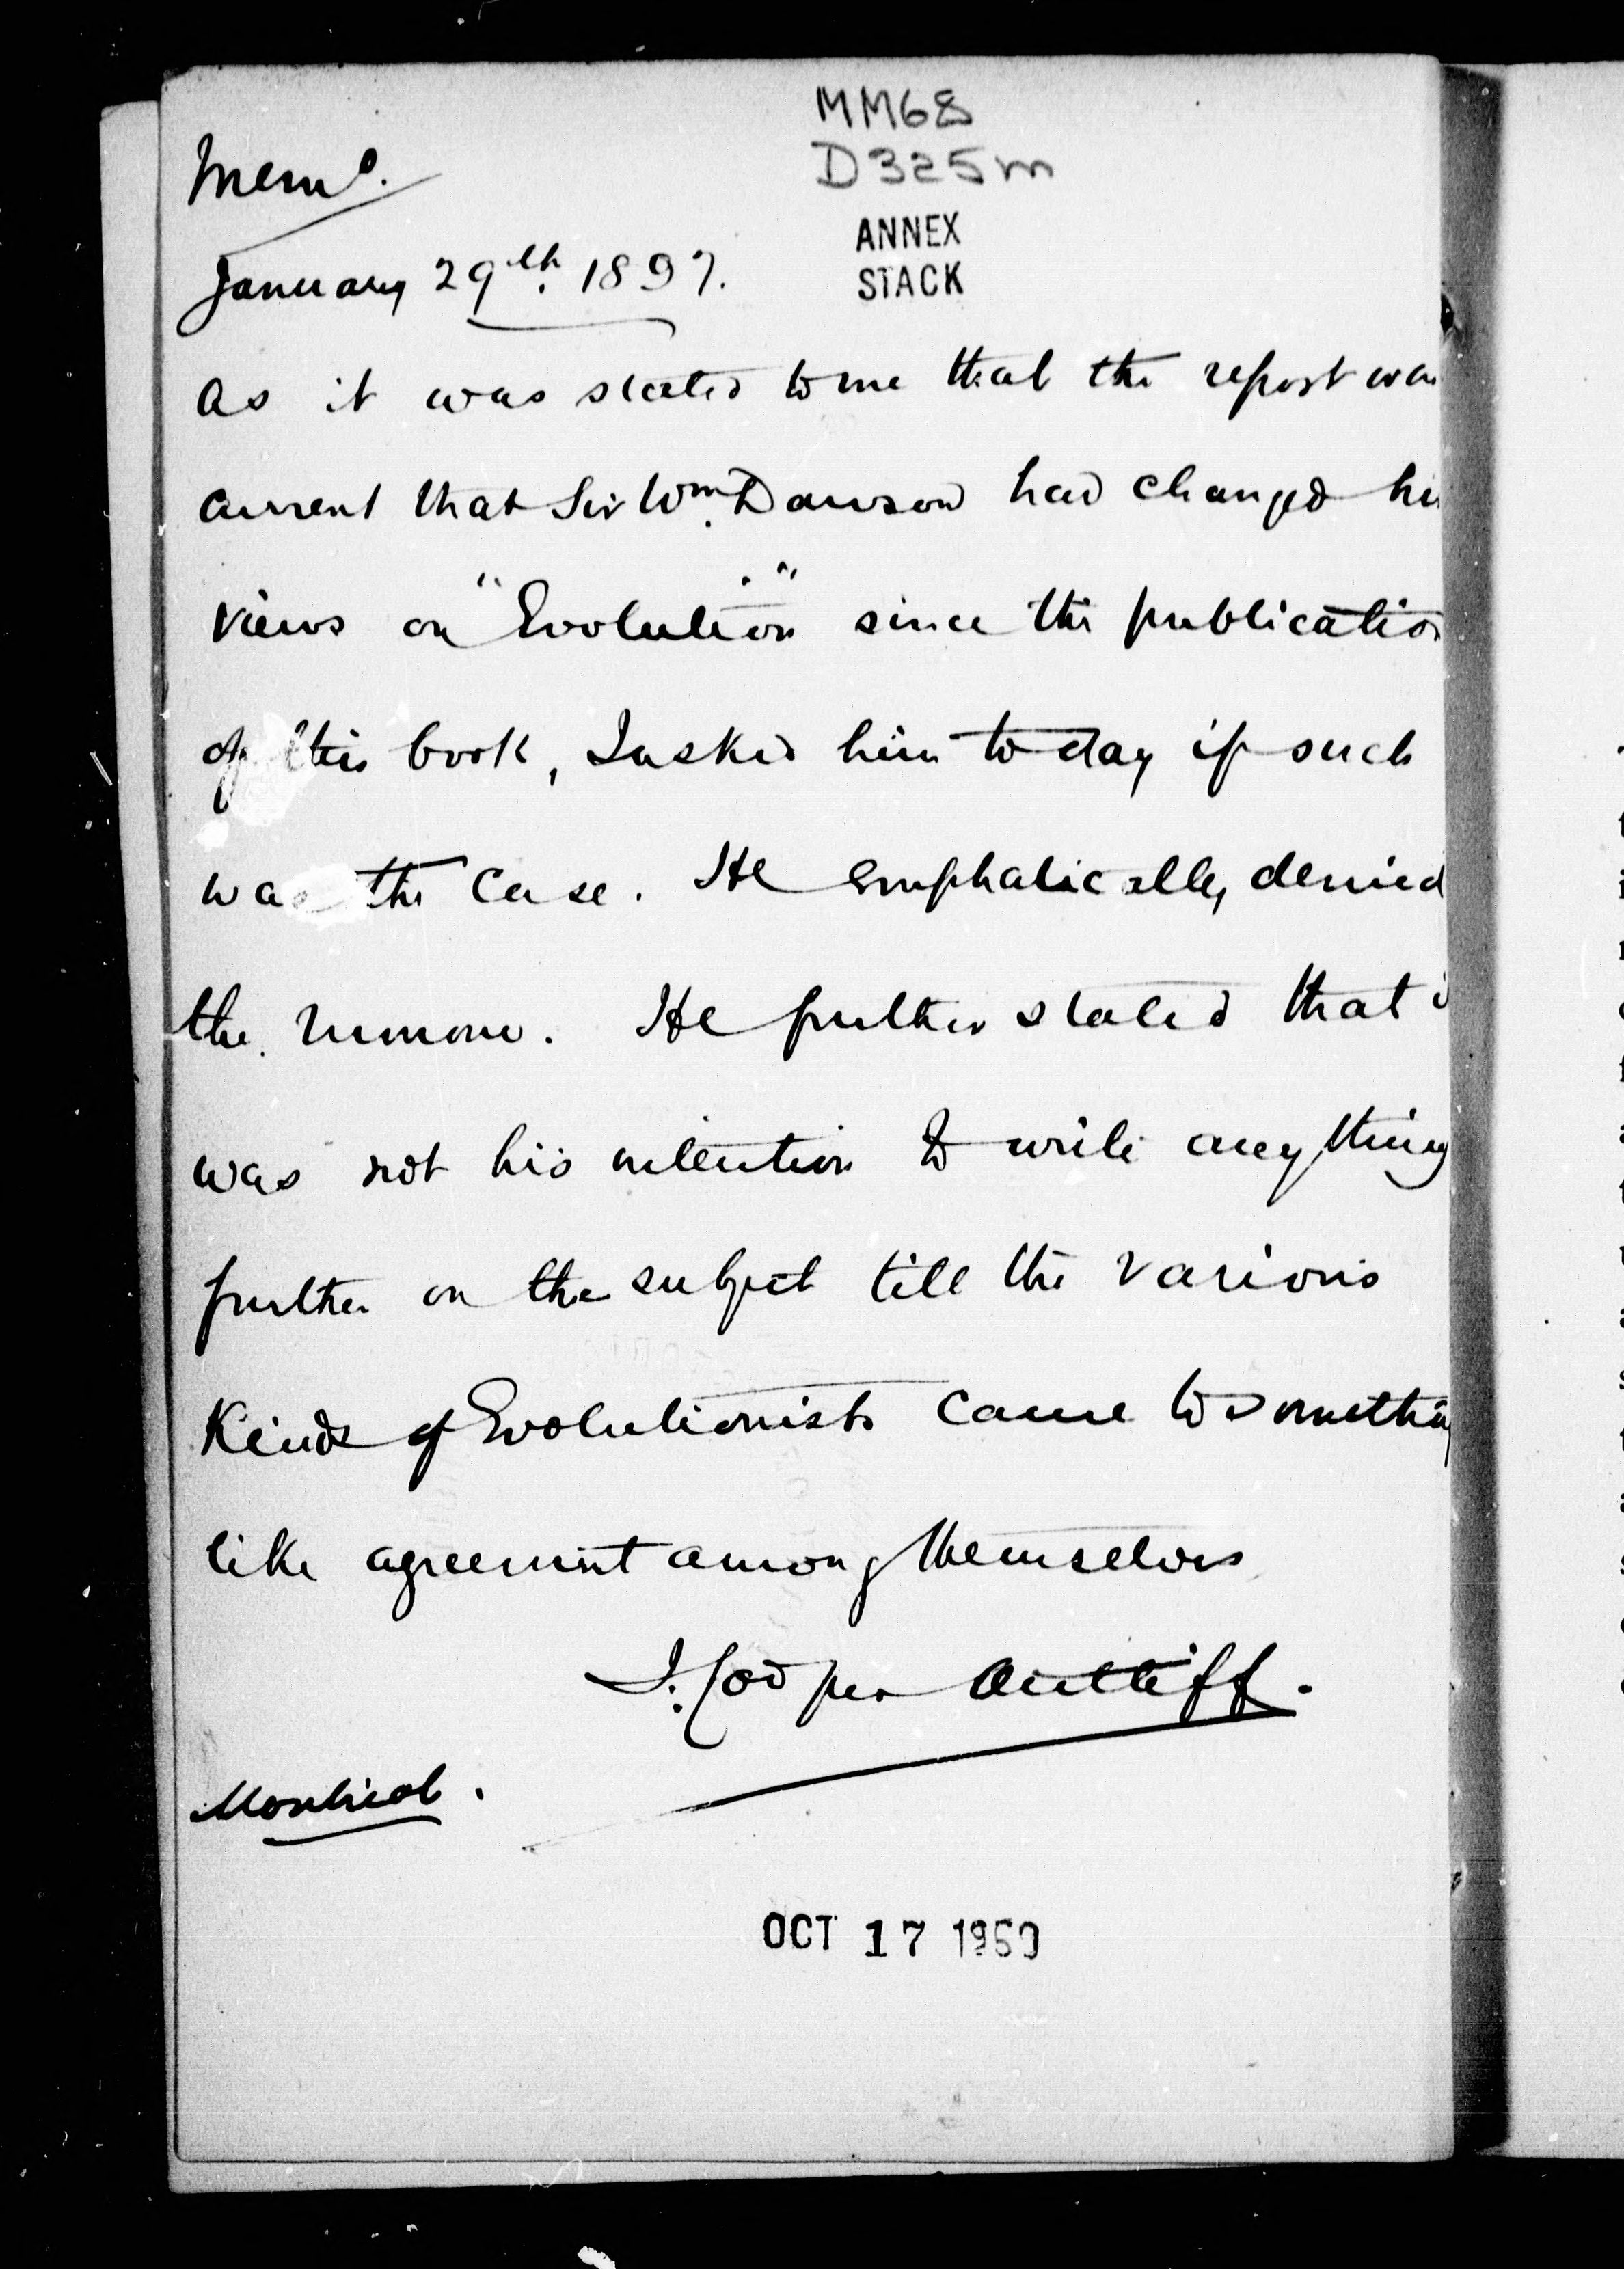 MM68
D325m
Memo.
ANNEX
January 29th. 1897.
STACK
As it was stated to me that the report wa
current that Sir Wm. Dawson had changed hi
views on "Evolution" since the publicatio
of this book, I asked him to day if such
was the case. He emphatically denied
the rumour. He further stated that i
was not his intention to write anything
further on the subject till the various
Kinds of Evolutionists came to somethin
like agreement among themselves
J. Cooper Antliff.
Montreal.
OCT 17 1960